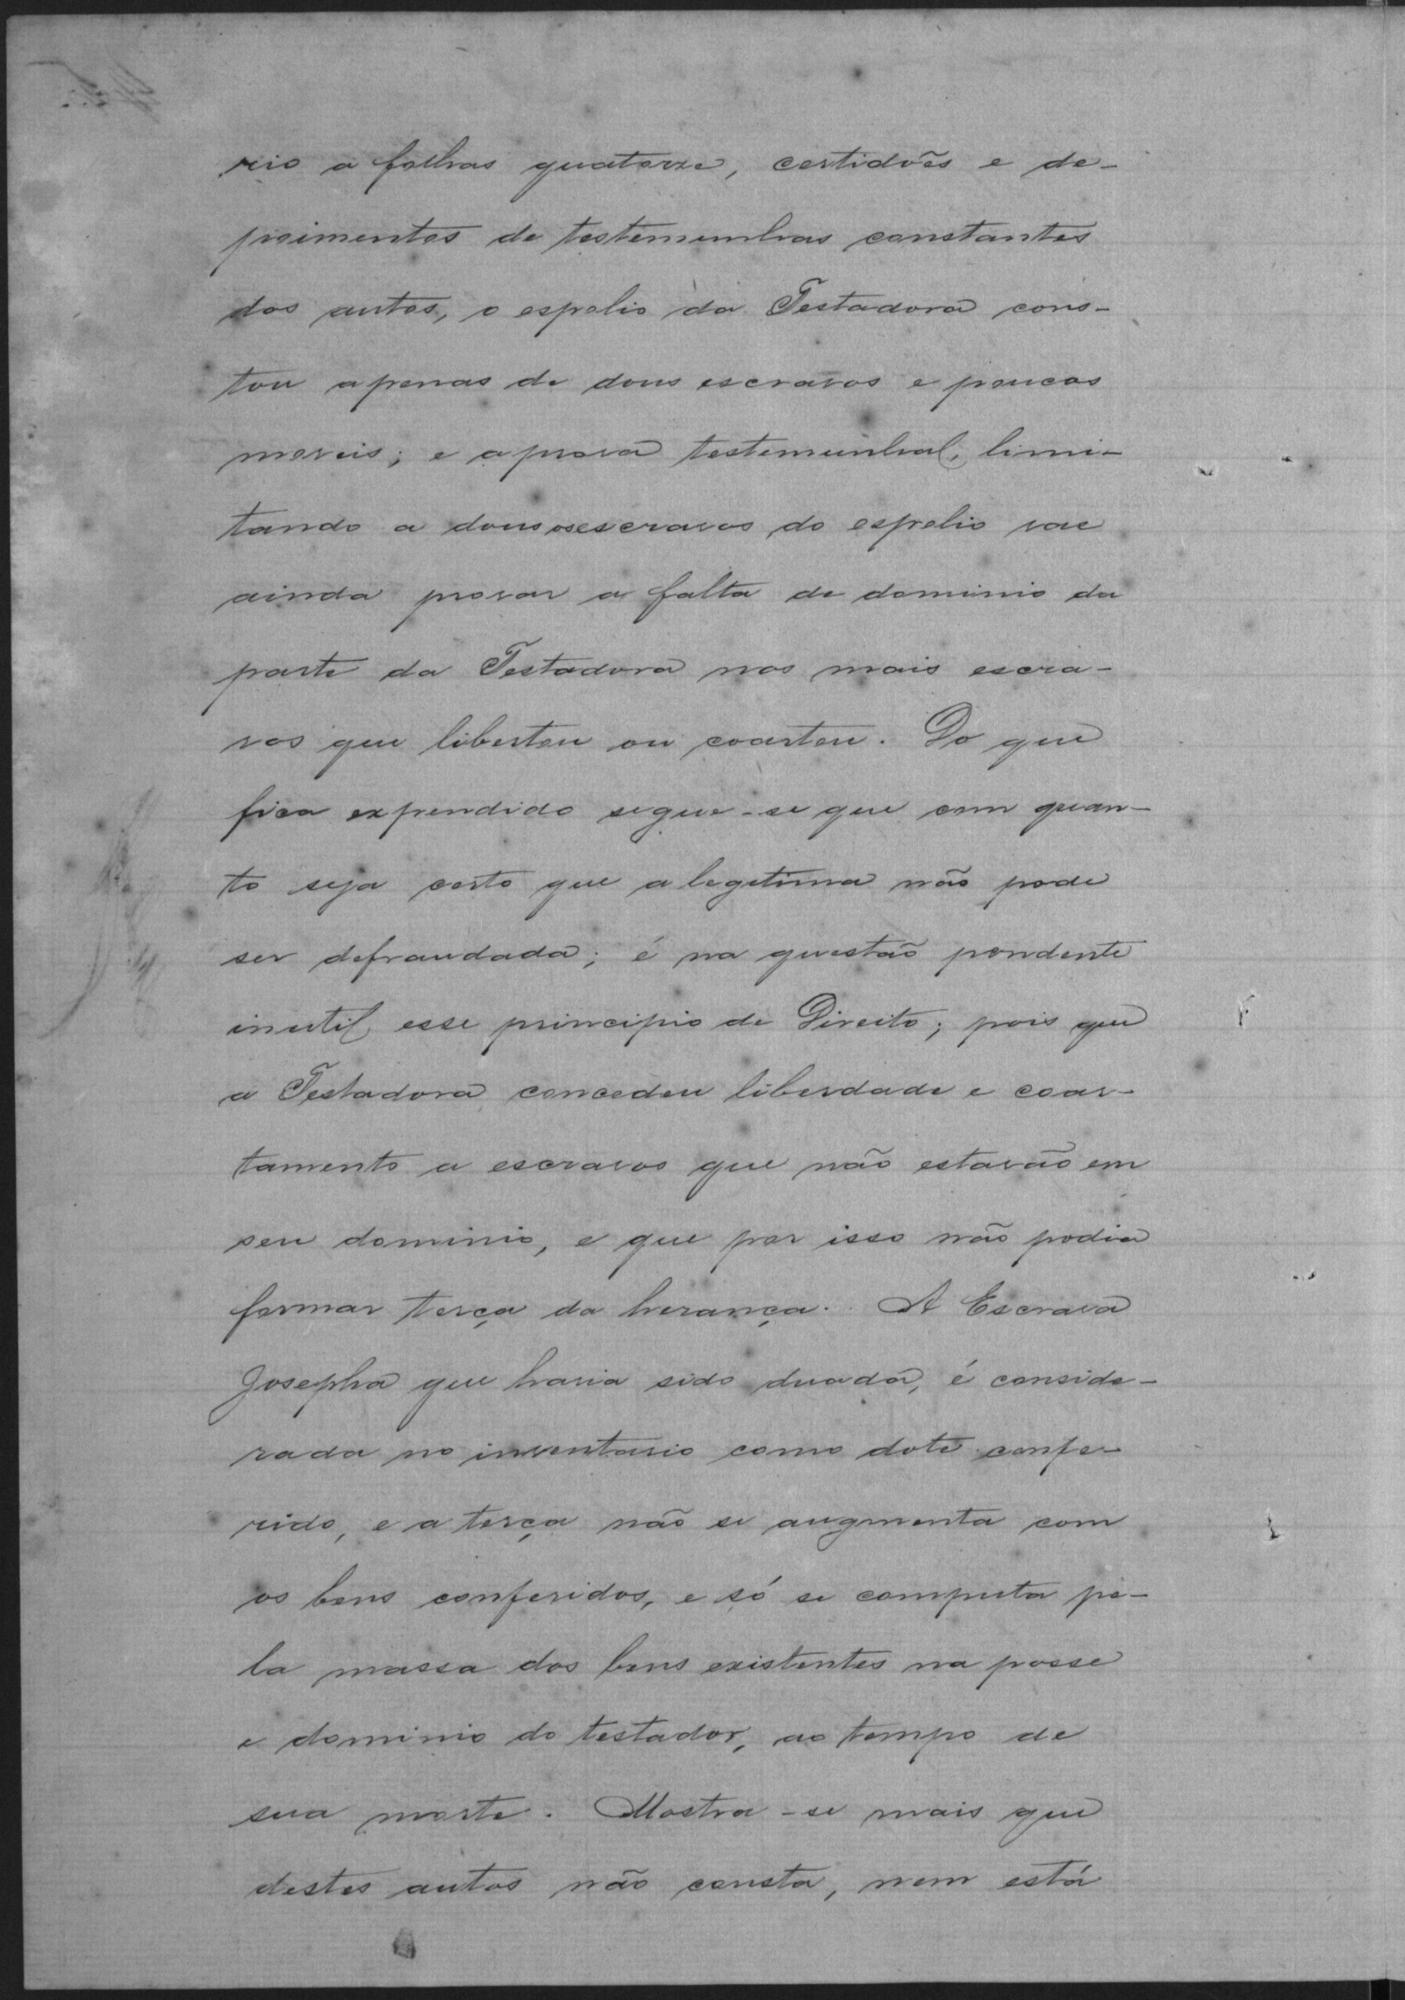 rio a folhas quatorze, certidões e de-
poimentos de testemunhas constantes
dos autos, o espolio da Testadora cons-
tou apenas de dous escravos e poucos
moveis; e a prova testemunhal, limi-
tando a dous os escravos do espolio vae
ainda provar a falta de dominio da
parte da Testadora nos mais escra-
vos que libertou ou coartou. Do que
fica expendido segue-se que com quan-
to seja certo que a legitima não pode
ser defraudada; é na questão pendente
inutil esse principio de Direito; pois que
a Testadora concedeu liberdade e coar-
tamento a escravos que não estavão em
seu dominio, e que por isso não podia
formar terça da herança. A Escrava
Josepha que havia sido doada, é conside-
rada no inventario como dote confe-
rido, e a terça não se augmenta com
os bens conferidos, e só se computa pe-
la massa dos bens existentes na posse
e dominio do testador, ao tempo de
sua morte. Mostra-se mais que
destes autos não consta, nem está